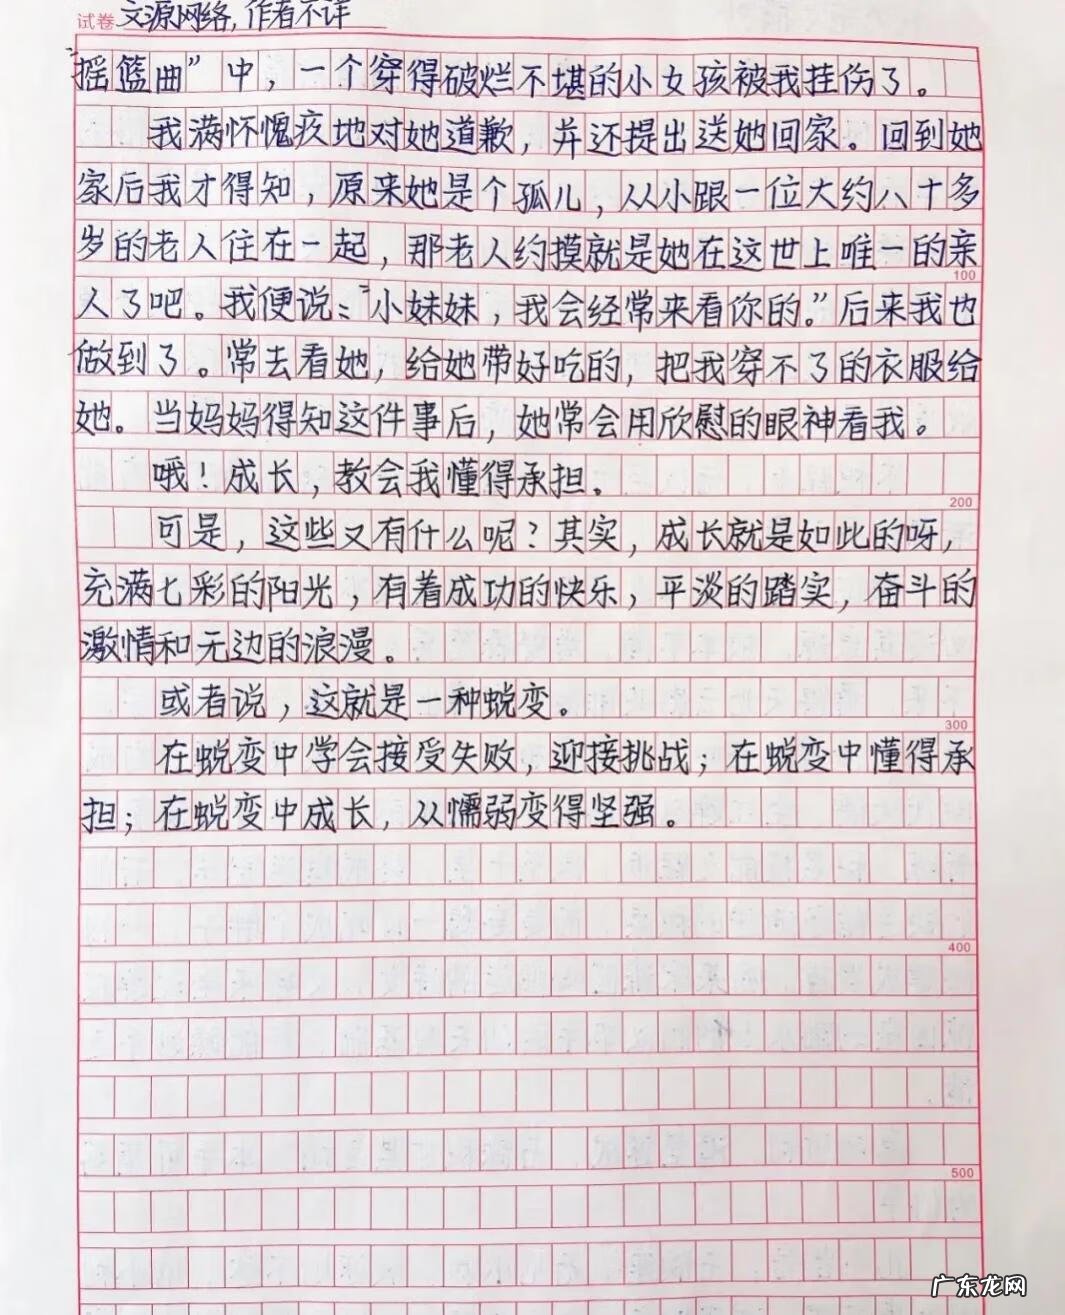 试卷 文源网络，作者不详
“摇篮曲”中，一个穿得破烂不堪的小女孩被我挂伤了。
我满怀愧疚地对她道歉，并还提出送她回家。回到她
家后我才得知，原来她是个孤儿，从小跟一位大约八十多
岁的老人住在一起，那老人约摸就是她在这世上唯一的亲
100
人了吧。我便说：“小妹妹，我会经常来看你的。”后来我也
做到了。常去看她，给她带好吃的，把我穿不了的衣服给
她。当妈妈得知这件事后，她常会用欣慰的眼神看我。
哦！成长，教会我懂得承担。
200
可是，这些又有什么呢？其实，成长就是如此的呀，
充满七彩的阳光，有着成功的快乐，平淡的踏实，奋斗的
激情和无边的浪漫。
或者说，这就是一种蜕变。
300
在蜕变中学会接受失败，迎接挑战；在蜕变中懂得承
担；在蜕变中成长，从懦弱变得坚强。
400
500
广东龙网